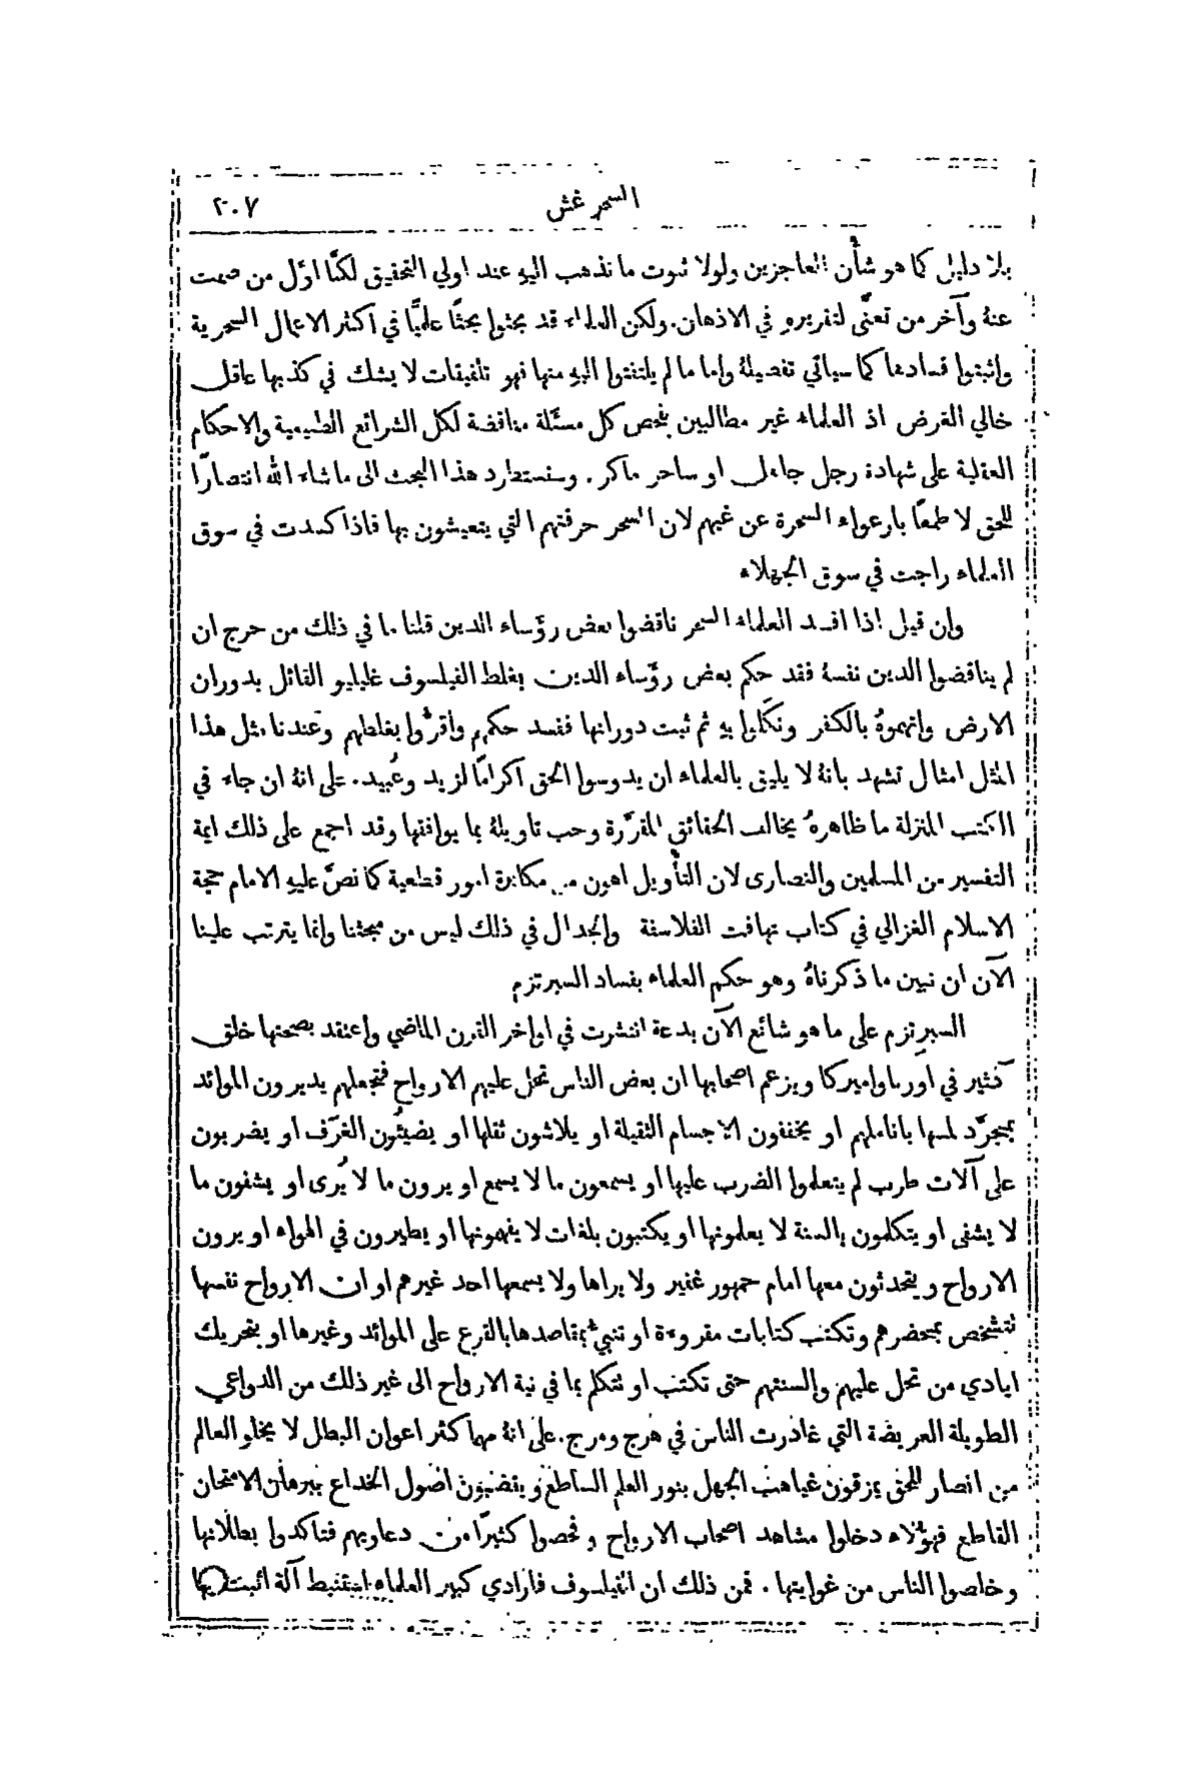 السحر غش ٢٠٧
بلا دليل كما هو شأن العاجزين ولولا ثبوت ما نذهب اليهِ عند اولي التحقيق لكنَّا اوَّل من صمت
عنهُ وآخر من تعنَّى لتقريرهِ في الاذهان. ولكن العلماء قد بحثوا بحثًا علميًّا في اكثر الاعمال السحرية
واثبتوا فسادها كما سياتي تفصيلهُ واما ما لم يلتفتوا اليهِ منها فهو تلفيقات لا يشك في كذبها عاقل
خالي الغرض اذ العلماء غير مطالبين بفحص كل مسئلة مناقضة لكل الشرائع الطبيعية والاحكام
العقلية على شهادة رجل جاهل او ساحر ماكر. وسنستطرد هذا البحث الى ما شاء الله انتصارًا
للحق لا طمعًا بارعواء السحرة عن غيهم لان السحر حرفتهم التي يتعيشون بها فاذا كسدت في سوق
العلماء راجت في سوق الجهلاء
وان قيل اذا افسد العلماء السحر ناقضوا بعض رؤساء الدين قلنا ما في ذلك من حرج ان
لم يناقضوا الدين نفسهُ فقد حكم بعض رؤساء الدين بغلط الفيلسوف غليليو القائل بدوران
الارض واتهموهُ بالكفر ونكَّلوا بهِ ثم ثبت دورانها ففسد حكمهم واقرُّوا بغلطهم وعندنا مثل هذا
المثل امثال تشهد بانهُ لا يليق بالعلماء ان يدوسوا الحق اكرامًا لزيد وعُبيد. على انهُ ان جاء في
الكتب المنزلة ما ظاهرهُ يخالف الحقائق المقرَّرة وجب تاويلهُ بما يوافقها وقد اجمع على ذلك ايمة
التفسير من المسلمين والنصارى لان التأويل اهون من مكابرة امور قطعية كما نصَّ عليهِ الامام حجة
الاسلام الغزالي في كتاب تهافت الفلاسفة والجدال في ذلك ليس من مبحثنا وانما يترتب علينا
الآن ان نبين ما ذكرناهُ وهو حكم العلماء بفساد السبرتزم
السبرِتزم على ما هو شائع الآن بدعة انتشرت في اواخر القرن الماضي واعتقد بصحتها خلق
كثير في اوربا واميركا ويزعم اصحابها ان بعض الناس تحل عليهم الارواح فتجعلهم يديرون الموائد
بمجرَّد لمسها باناملهم او يخففون الاجسام الثقيلة او يلاشون ثقلها او يضيئُون الغرَف او يضربون
على آلات طرب لم يتعلموا الضرب عليها او يسمعون ما لا يسمع او يرون ما لا يُرى او يشفون ما
لا يشفى او يتكلمون بالسنة لا يعلمونها او يكتبون بلغات لا يفهمونها او يطيرون في الهواء او يرون
الارواح ويتحدثون معها امام جمهور غفير ولا يراها ولا يسمعها احد غيرهم او ان الارواح نفسها
تتشخص بمحضرهم وتكتب كتابات مقروءة او تنبئُ بمقاصدها بالقرع على الموائد وغيرها او بتحريك
ايادي من تحل عليهم والسنتهم حتى تكتب او تتكلم بما في نية الارواح الى غير ذلك من الدواعي
الطويلة العريضة التي غادرت الناس في هرج ومرج. على انهُ مهما كثر اعوان البطل لا يخلو العالم
من انصار للحق يمزقون غياهب الجهل بنور العلم الساطع ويقضبون اصول الخداع ببرهان الامتحان
القاطع فهؤُلاء دخلوا مشاهد اصحاب الارواح وفحصوا كثيرًا من دعاويهم فتاكدوا بطلانها
وخلصوا الناس من غوايتها. فمن ذلك ان الفيلسوف فارادي كبير العلماء استنبط آلة اثبت بها